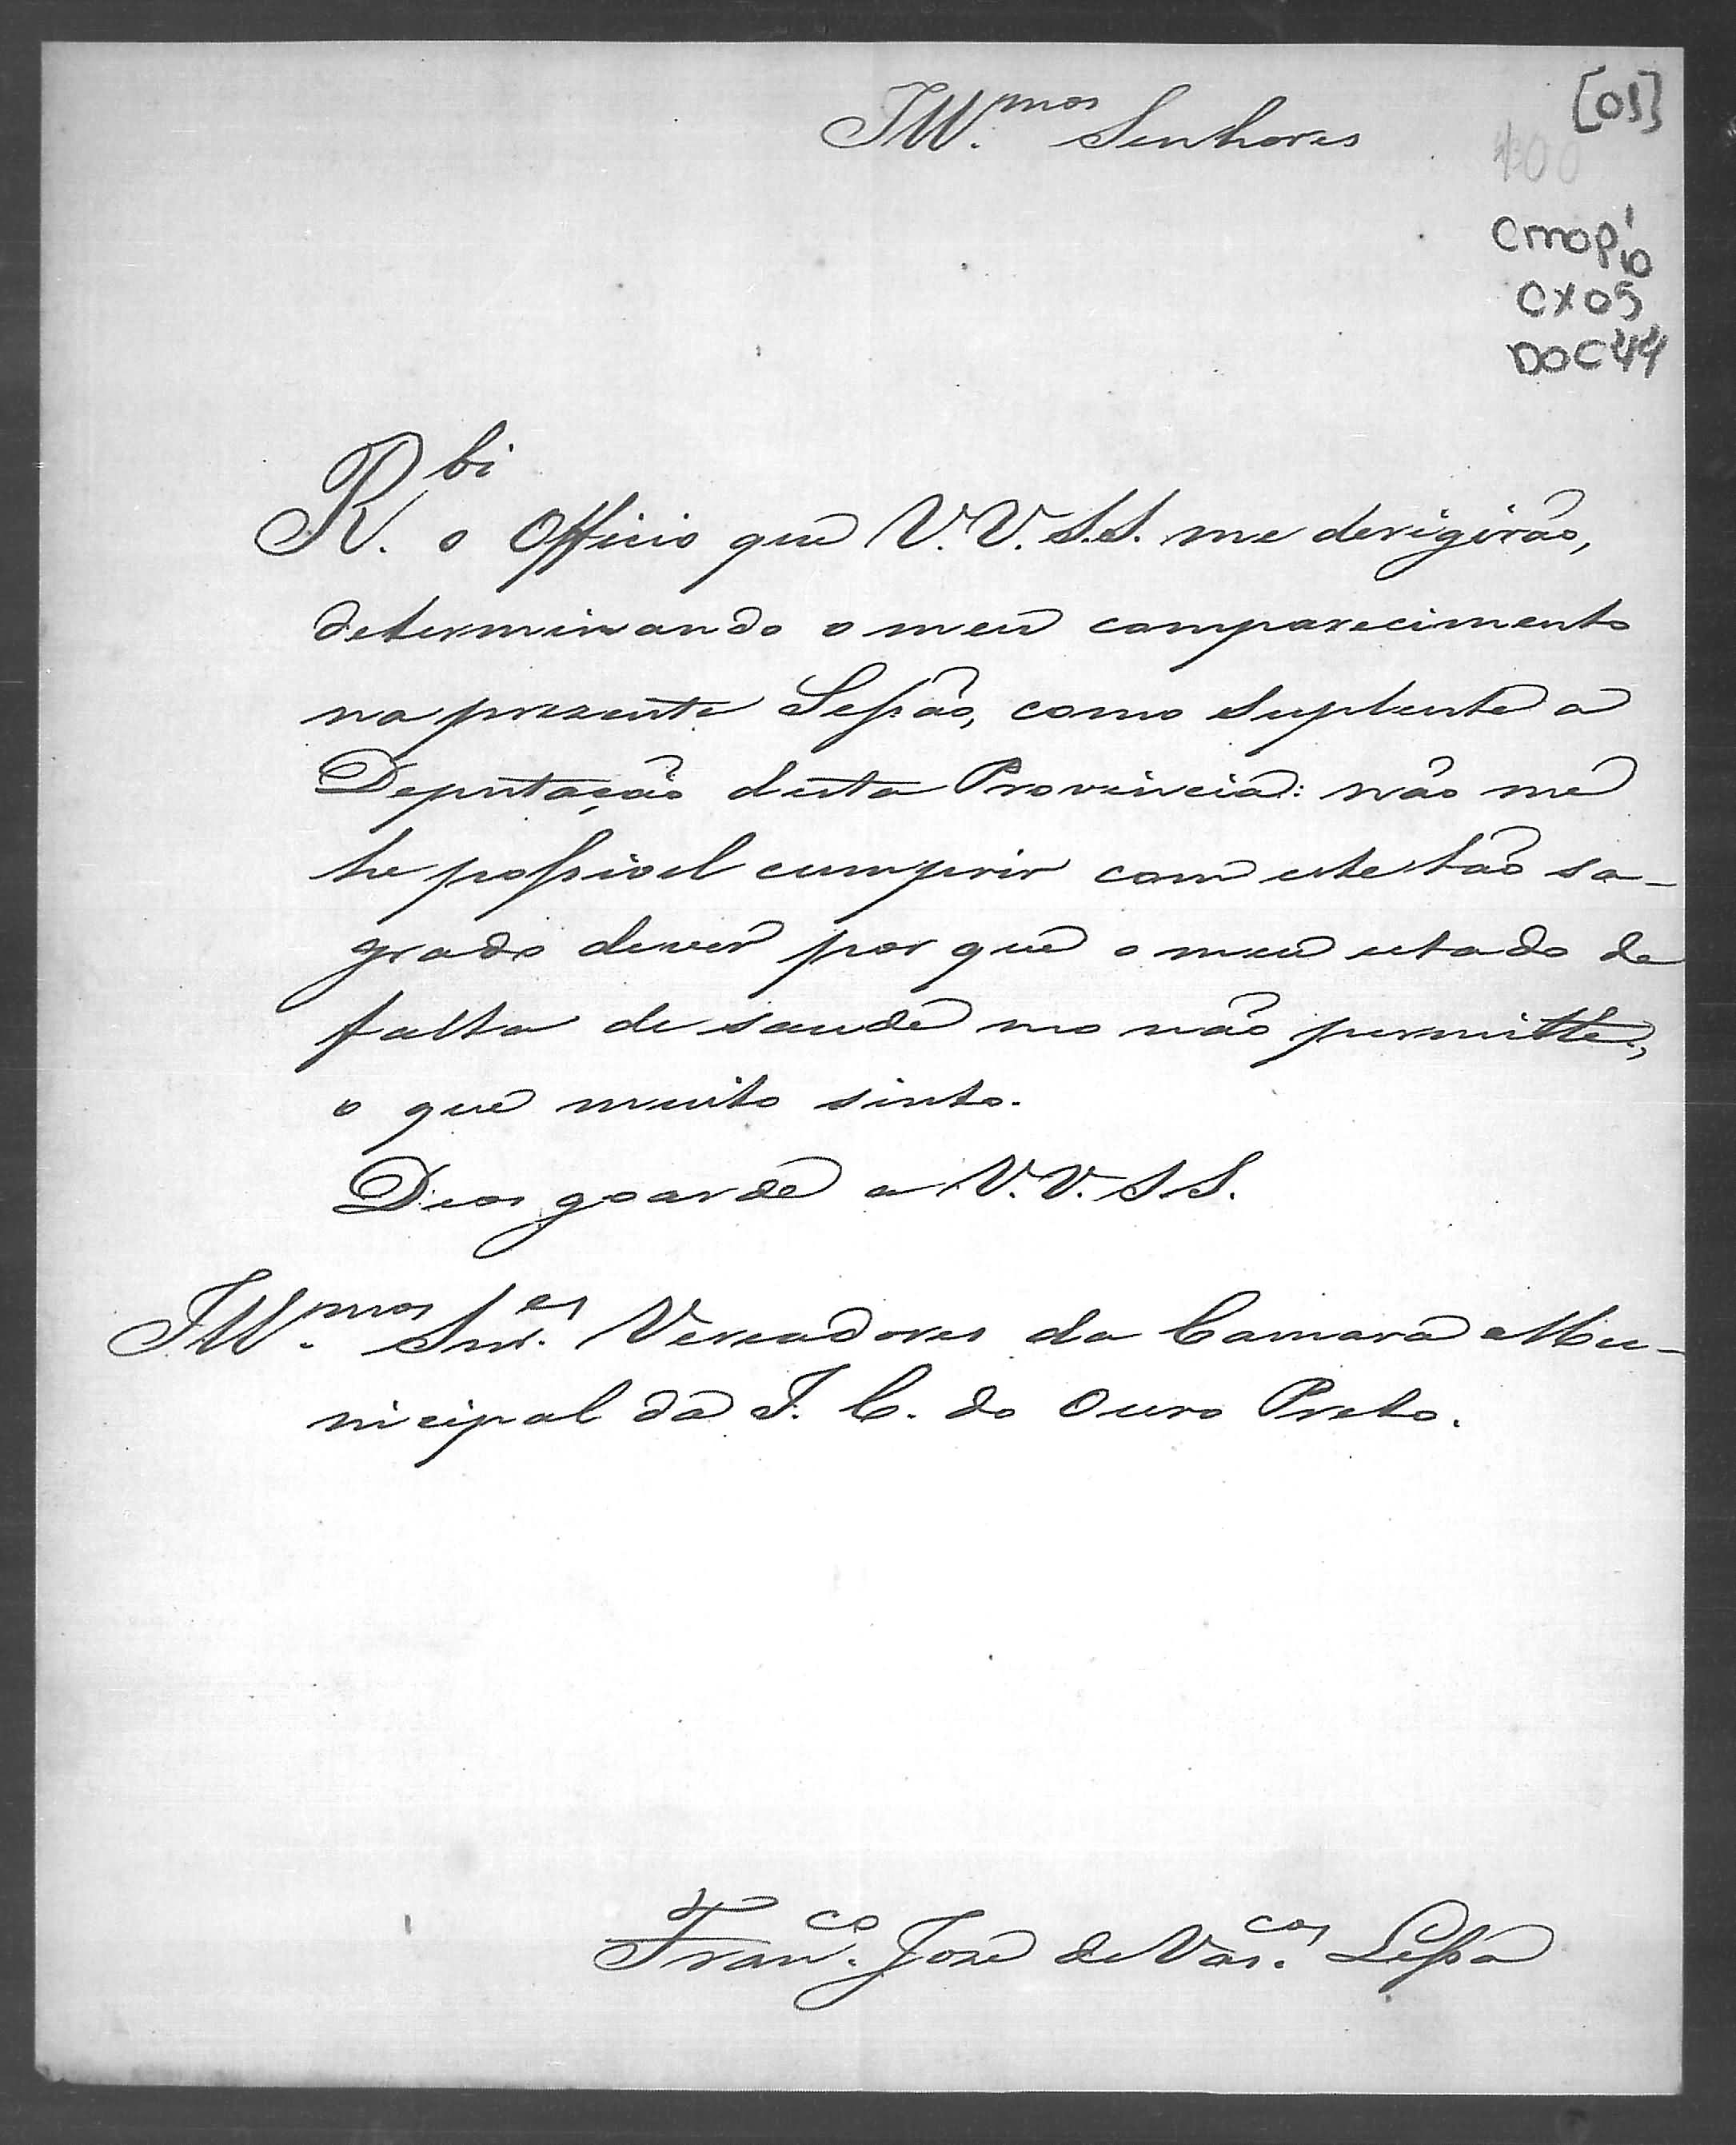 Ill.mos Senhores
[01]
100
CMOP 1/10
CX 05
DOC 44
R.bi o Officio que V.V. S.S. me derigirão,
determinando o meu comparecimento
na prezente Seſsão, como suplente a
Deputação desta Provincia: não me
he poſsivel cumprir com este tão sa-
grado dever por que o meu estado de
falta de saude mo não permitte,
o que muito sinto.
Deos goarde a V.V. S.S.
Ill.mos Snr.es Vereadores da Camara Mu-
nicipal da I. C. do Ouro Preto.
Fran.co José de Vas.cos Leſsa